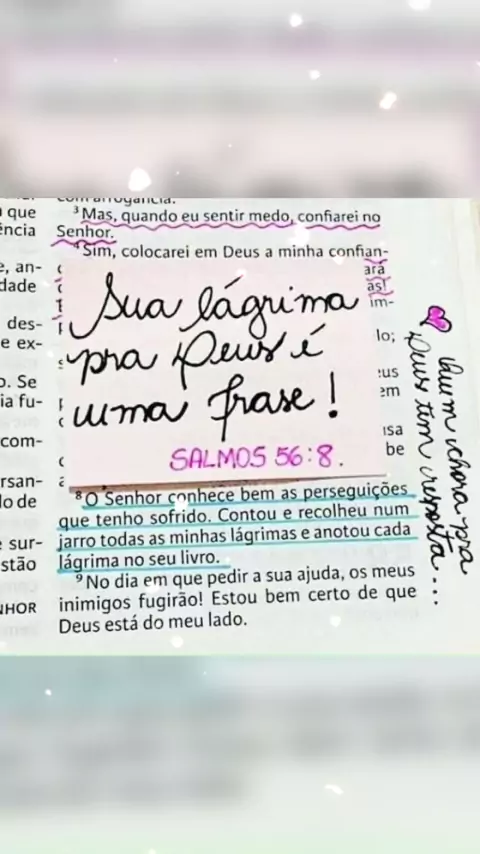 com arrogância.
³Mas, quando eu sentir medo, confiarei no
Senhor.
⁴Sim, colocarei em Deus a minha confian-
ará
as!
im-
lo;
eus
em
isa
be
Sua lágrima
pra Deus é
uma frase!
SALMOS 56:8.
⁸O Senhor conhece bem as perseguições
que tenho sofrido. Contou e recolheu num
jarro todas as minhas lágrimas e anotou cada
lágrima no seu livro.
⁹No dia em que pedir a sua ajuda, os meus
inimigos fugirão! Estou bem certo de que
Deus está do meu lado.
que
ência
e, an-
dade
des-
e ex-
o. Se
ia fu-
com-
ersan-
lo de
e sur-
stão
NHOR
chora pra
Deus tem resposta...